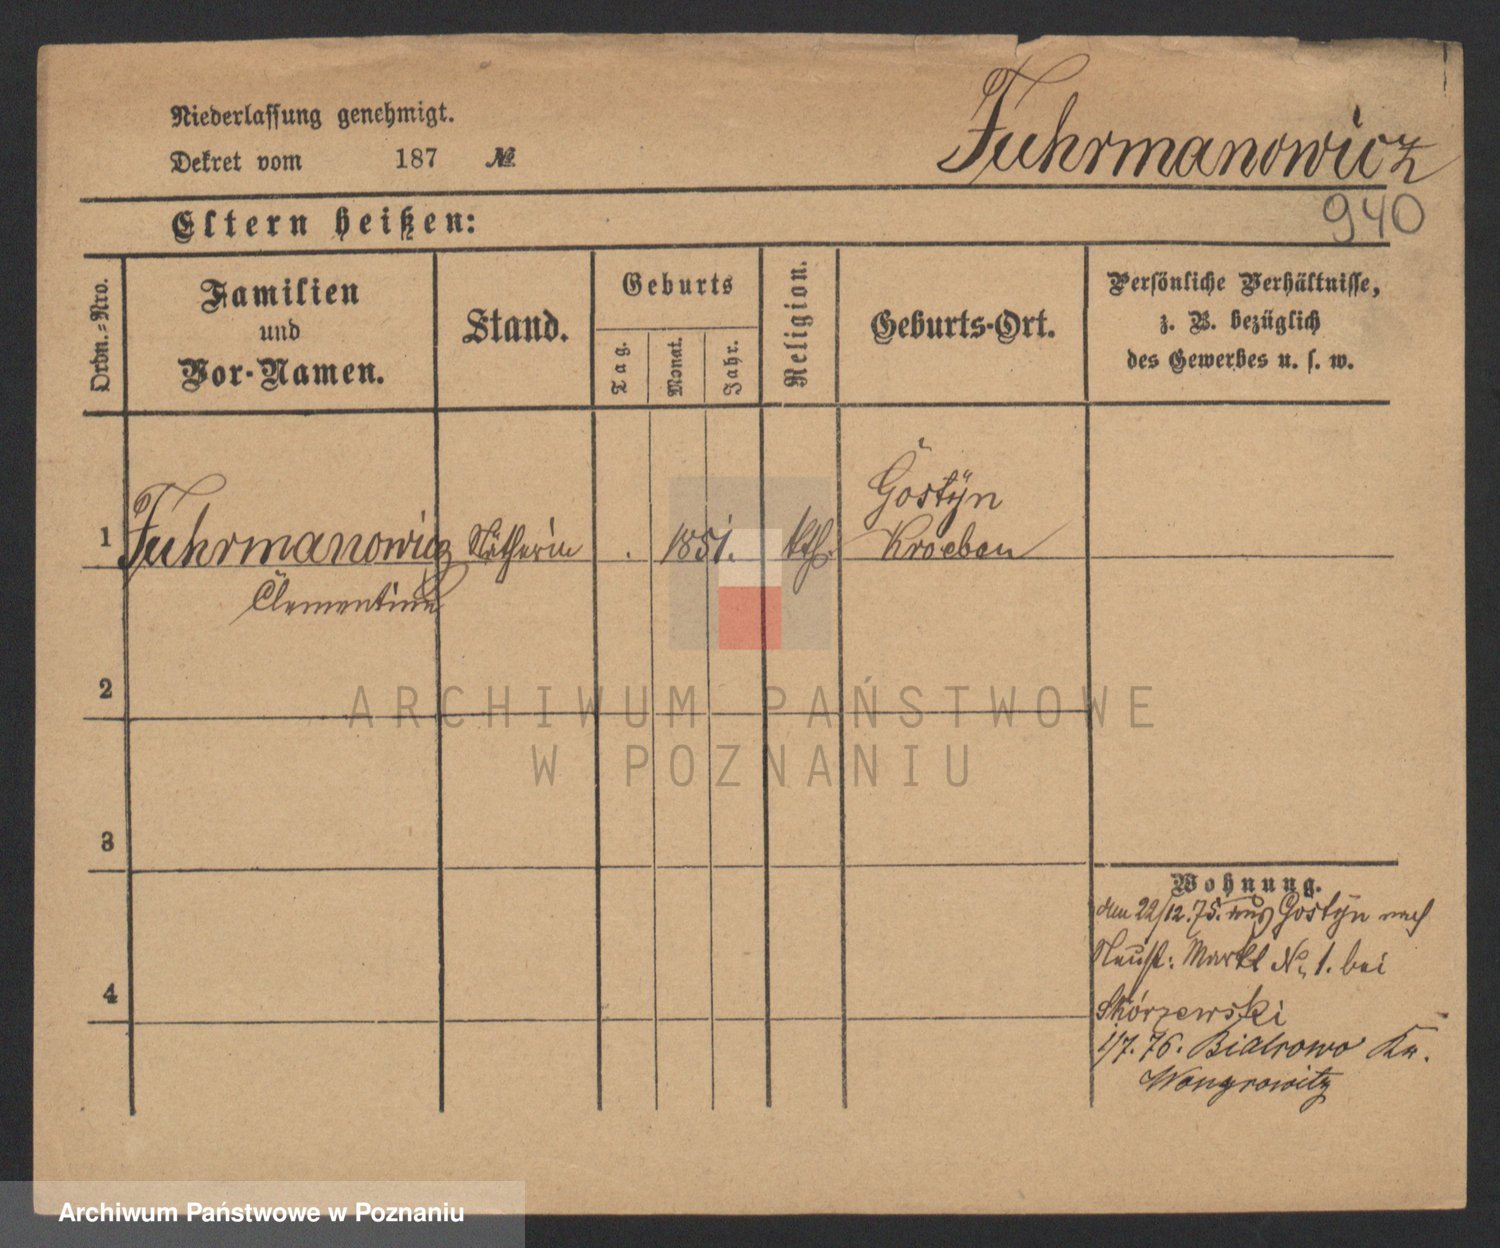 Niederlassung genehmigt.
Dekret vom 187 №
Fuhrmanowicz
940
Eltern heißen:
Ordn.-Nro.
Familien
und
Vor-Namen.
Stand.
Geburts
Tag.
Monat.
Jahr.
Religion.
Geburts-Ort.
Persönliche Verhältnisse,
z. B. bezüglich
des Gewerbes u. s. w.
1 Fuhrmanowicz Nätherin 1851. kth. Gostÿn
Kroeben
Clementine
2
3
4
Wohnung.
den 22/12.75. aus Gostÿn nach
Neust: Markt № 1. bei
Skórzewski
1/7.76. Bialrowo Kr.
Wongrowitz
ARCHIWUM PAŃSTWOWE
W POZNANIU
Archiwum Państwowe w Poznaniu